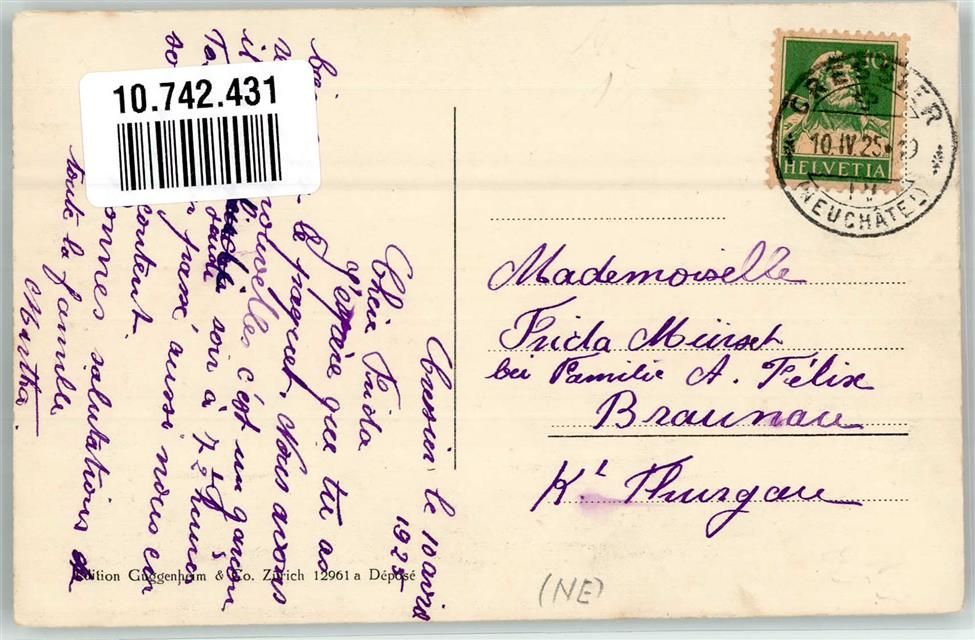 10.742.431
10
CRESSIER
10.IV.25-19
HELVETIA
(NEUCHÂTEL)
Mademoiselle
Frida Mürset
bei Familie A. Félix
Braunau
Kt Thurgau
Cressier le 10 avril
1925
Chère Frida
J'espère que tu as
le paquet. Nous avons
c'est un garçon
soir à 7 1/2 heures
passé aussi nous
content.
onnes salutations de
toute la famille
Martha.
Edition Guggenheim & Co. Zürich 12961 a Déposé
(NE)